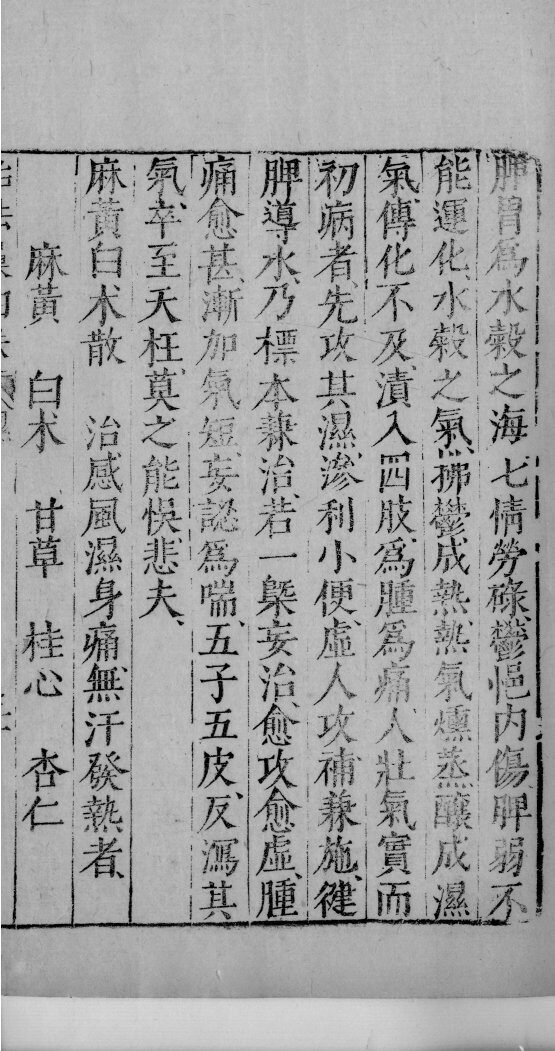 脾胃爲水榖之海、七情勞碌、鬱悒内傷、脾弱不
能運化、水榖之氣、拂鬱成熱、熱氣燻蒸、釀成濕
氣、傳化不及、漬入四肢、爲腫爲痛、人壯氣實而
初病者、先攻其濕、滲利小便、虛人攻補兼施、健
脾導水、乃標本兼治、若一槩妄治、愈攻愈虛、腫
痛愈甚、漸加氣短、妄認爲喘、五子五皮、反瀉其
氣、卒至夭枉、莫之能悞、悲夫、
麻黃白术散　治感風濕身痛、無汗發熱者、
麻黃　白术　甘草　桂心　杏仁